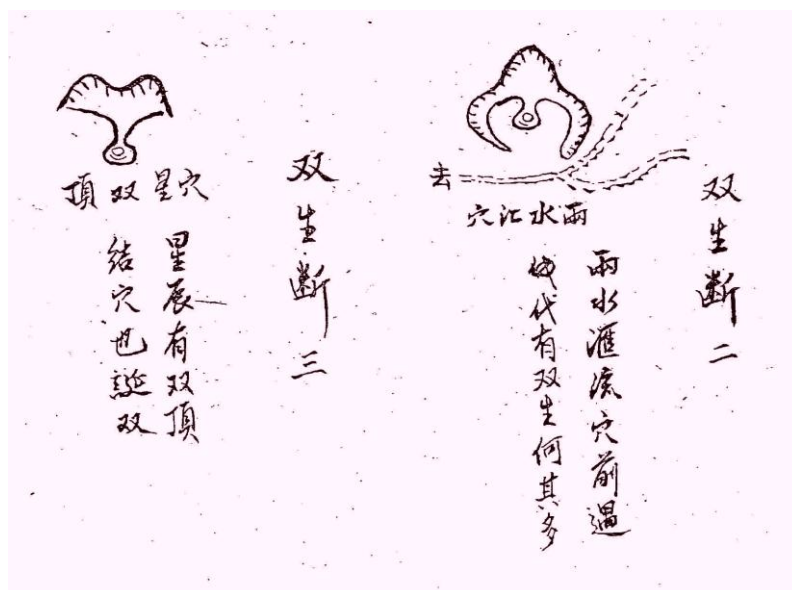 双生断二
去
兩水汇穴
兩水滙流穴前過
代有双生何其多
双生断三
穴星双頂
星辰有双頂
結穴也誕双